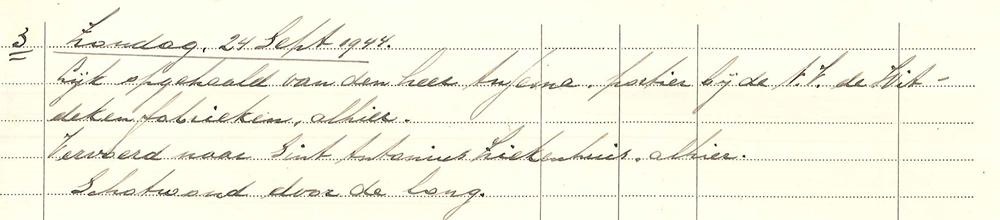 3 Zondag, 24 Sept 1944.
Lijk opgehaald van den heer , portier bij de N.V. de Wit-
dekenfabrieken, alhier.
Vervoerd naar Sint Antonius Ziekenhuis, alhier.
Schotwond door de long.